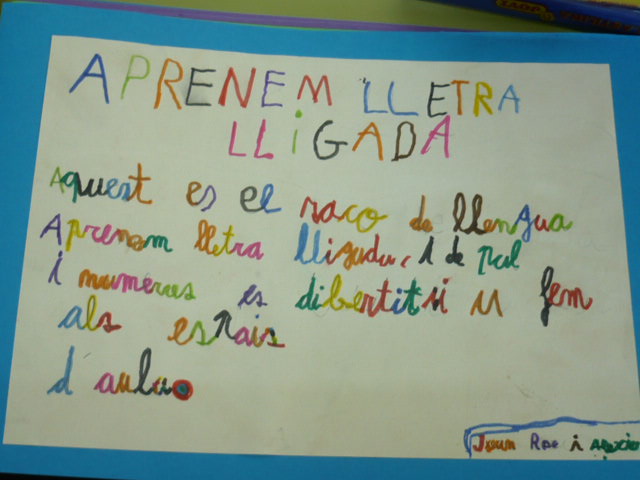 APRENEM LLETRA
LLiGADA
Aquest es el raco de llengua
Aprenem lletra lligada, i de pal
i numeros es dibertit ii u fem
als espais
d aula
Joan Roc i